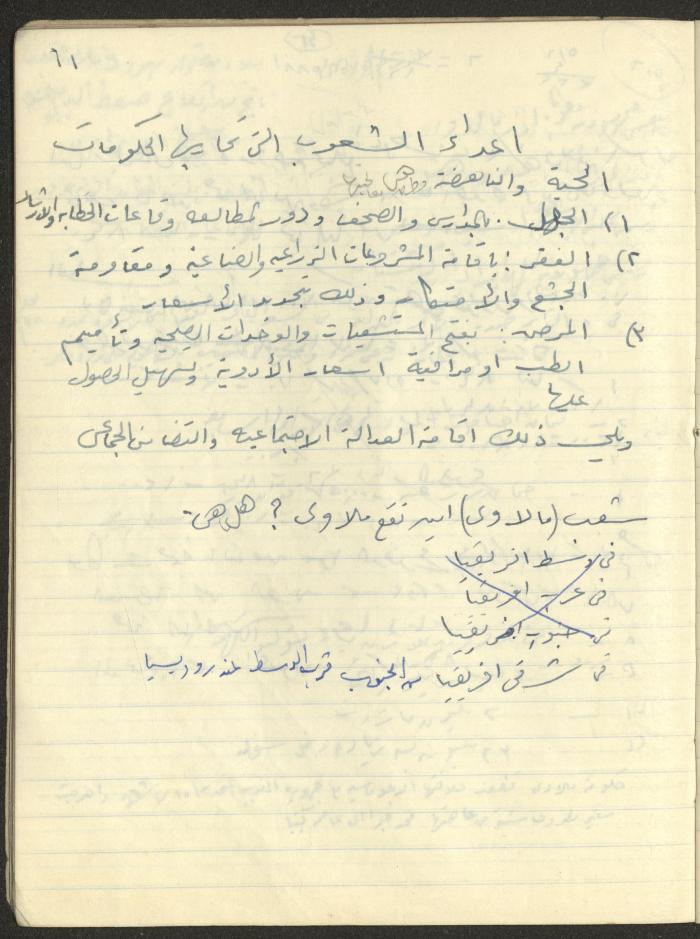 ٦١
اعداء الشعوب التى تحاربها الحكومات
المحبة والناهضة
١) الجهل. بالمدارس والصحف ودور المطالعه وقاعات الخطابه والارشاد
٢) الفقر: باقامة المشروعات الزراعيه والصناعية ومقاومة
الجشع والأحتكار وذلك بتحديد الأسعار
٣) المرض: بفتح المستشفيات والوحدات الصحيه وتأميم
الطب او مراقبة اسعار الأدوية وتسهيل الحصول
عليها
ويلى ذلك اقامة العدالة الاجتماعيه والتضامن الجماعى
شعب (مالاوى) اين تقع ملاوى ؟ هل هى -
فى وسط افريقيا
فى غرب افريقيا
فى جنوب افريقيا
فى شرقى افريقيا من الجنوب قرب الوسط عند روديسيا